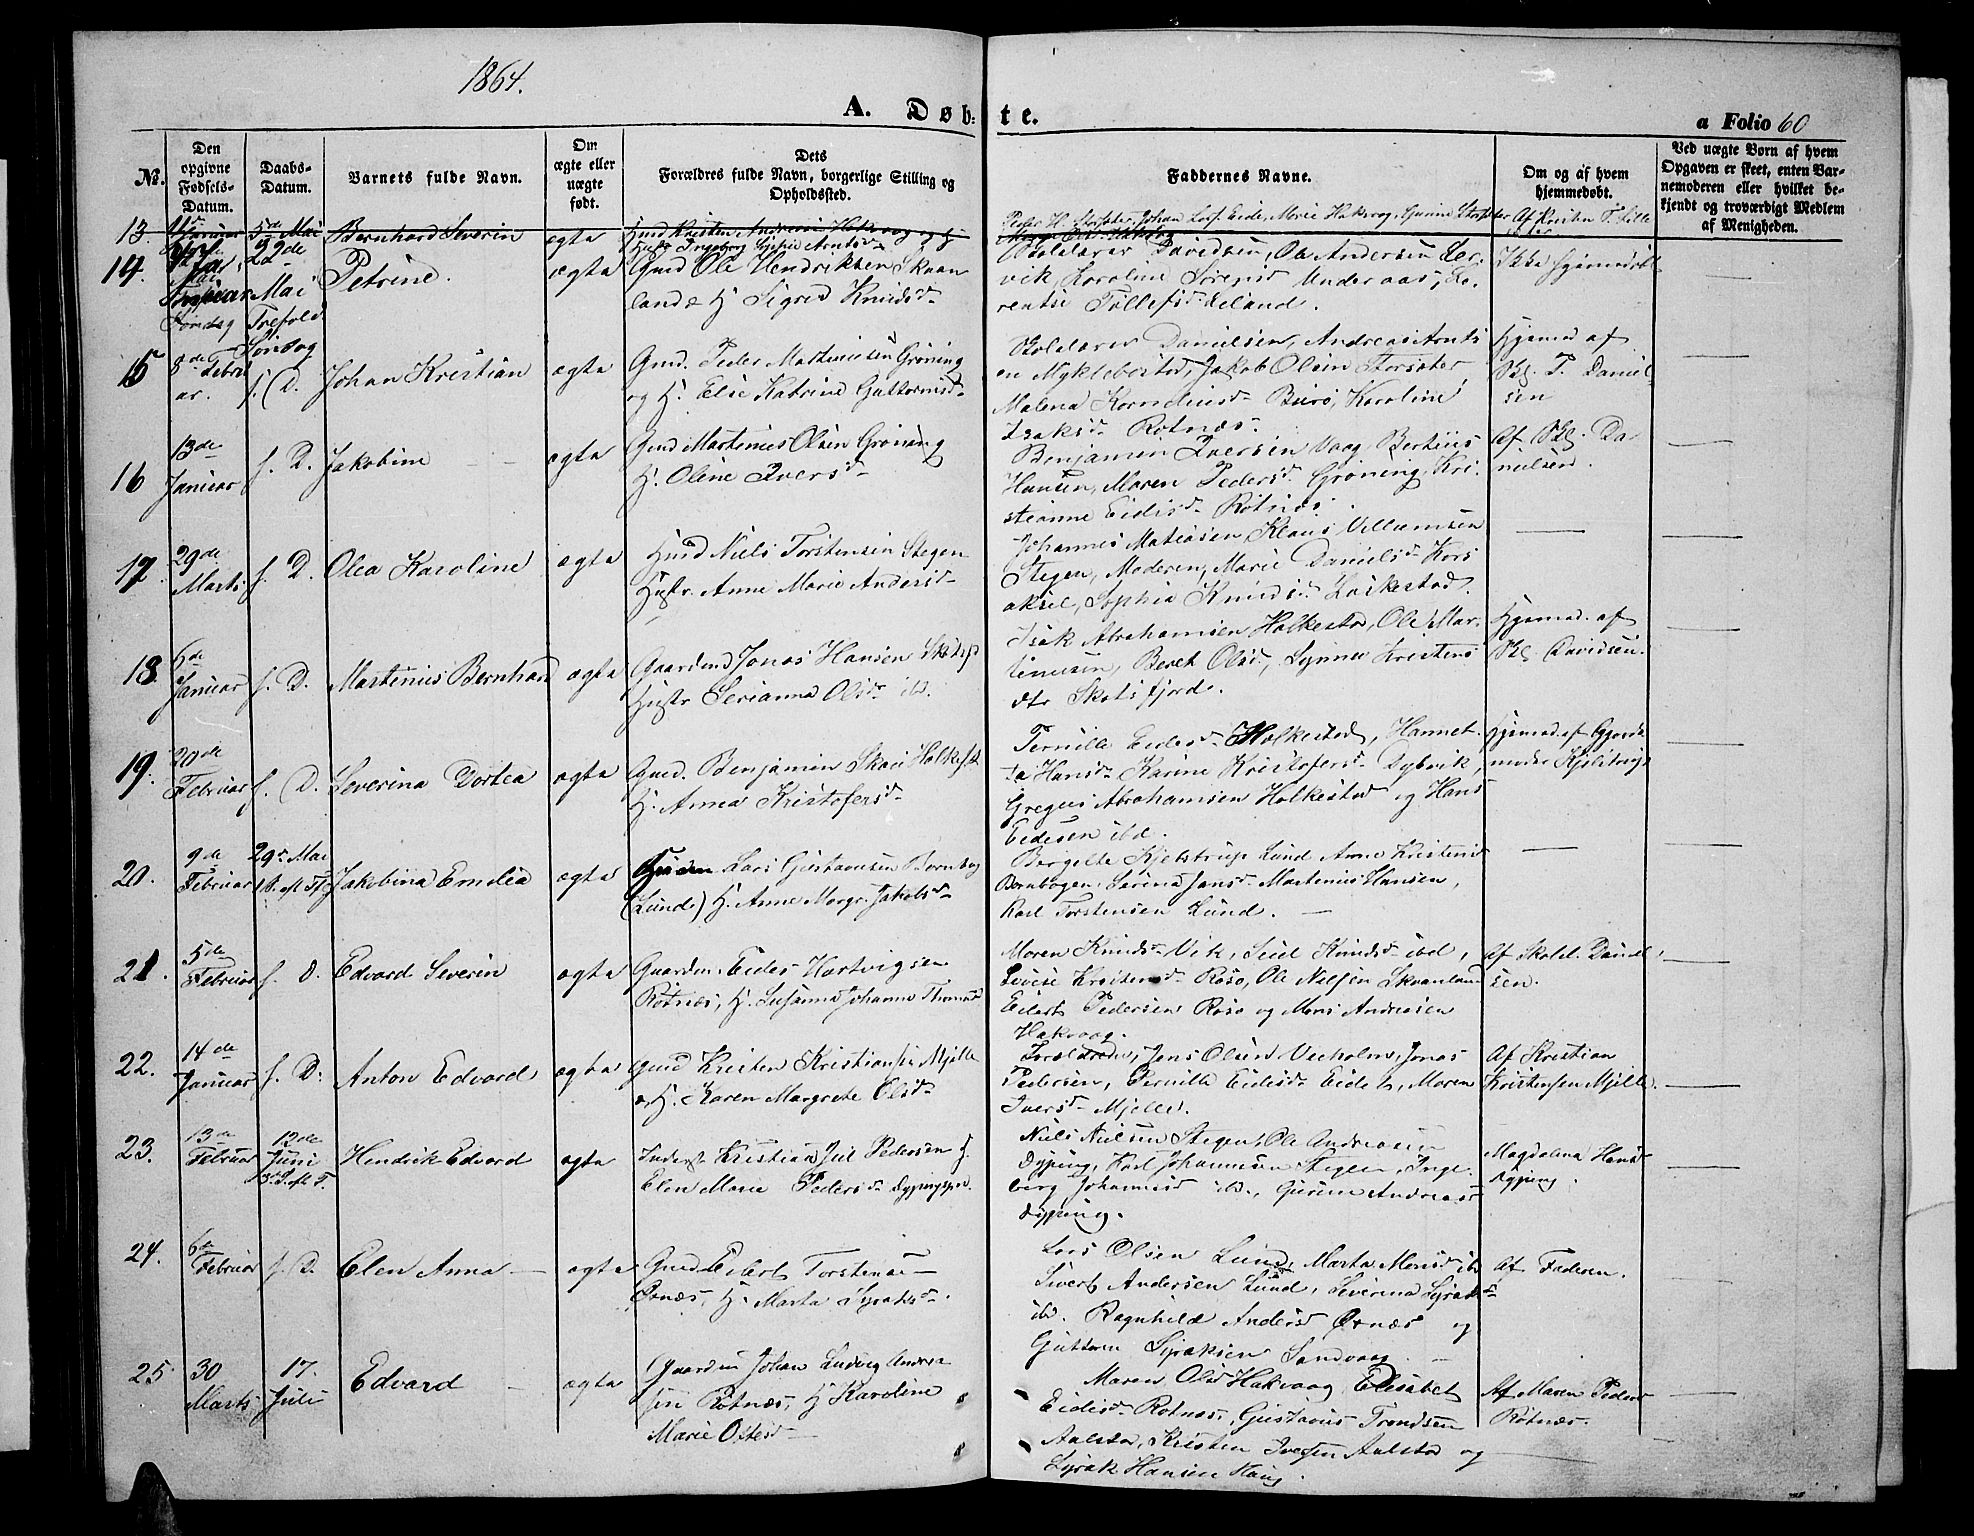 1864.
A. Døb:te.
a Folio 60
No. Den opgivne Fødsels-Datum. Daabs-Datum. Varnets fulde Navn. Om ægte eller uægte født. Dets Forældres fulde Navn, borgerlige Stilling og Opholdssted. Faddernes Navne. Om og af hvem hjemmedøbt. Ved uægte Børn af hvem Opgaven er skeet, enten Barnemoderen eller hvilket bekjendt og troværdigt Medlem af Menigheden.
13. Januar 5te Mai Bernhard Severin ægte
14. Januar 22de Mai Trefold. Søndag Petrine. ægte Gmd Ole Hendriksen Skaan
land & H. Sigrid Knudsd.
Skolelærer Davidsen, Ole Andersen Ler
vik, Karoline Underaas, Lo
rentse Tollefsd. Leland. Ikke hjemmedøbt
15 8de Februar. s. D. Johan Kristian ægte Gmd. Peder Martinusen Grøning
og H. Else Katrine Guttormsd.
Skolelærer Danielsen, Andreas Arnts
en Myklebostad, Jakob Olsen Storsæter
Malena Korneliusd. Burø, Karoline
Isaksd. Rotnæs. Hjemmed af
Skl. P. Daniel
sen
16 13de Januar s. D. Jakobine ægte Gmd Martinus Olsen Grøning
H. Oline Iversd.
Benjamin Iversen Vaag Bertius
Hansen, Maren Pedersd. Grøning, Kri
stianne Eidisd. Rotnæs. Af Skl. Da
nielsen.
17. 29de Marts s. D. Olea Karoline ægte Hmd Niels Torstensen Stegen
Hustr. Anne Marie Andersd.
Johannes Matiasen, Klaus Villumsen
Stegen, Moderen, Marie Danielsd. Kors
aksel, Sophia Knudsd. Laskestad.
18 6de Januar s. D. Martinus Bernhard ægte Gaardmd Jonas Hansen Skotsfj
Hustr Serianna Olsd. ibd.
Isak Abrahamsen Holkestad, Ole Mar
tinusen, Beret Olsd, Synnev Kristens
dtr Skotsfjord. Hjemmed. af
Skl Davidsen.
19. 20de Februar s. D. Severina Dortea ægte Gmd. Benjamin Skari Holkest
H. Anna Kristofersd.
Pernille Eidesd. Holkestad, Hannet
ta Hansd. Karine Kristofersd. Dybvik,
Gregus Abrahamsen Holkestad og Hans
Eidesen ibd. Hjemmed. af Gjorde
moder Kjelstrup
20. 9de Februar 29de Mai Jakobina Emilia ægte Lars Gustavsen Bornbog
(Lund) H. Anne Margr. Jakobsd.
Birgitte Kjelstrup Lund Anne Kristensd
Bornbogen, Serina Jansd. Martenius Hansen,
Karl Torstensen Lund.
21. 5de Februar s. D. Edvard Severin ægte Gaardm. Eides Hartvigsen
Rotnæs, H. Susanna Johanna Thomasd
Maren Knudsd. Vik, Seiel Knudsd. ibd,
Lovise Kristensd. Røsø, Ole Nilsen Skaanlan
Eilert Pedersen Røsø og Mons Andreasen
Hakvaag. Af Skolel. Daniel
sen.
22. 14de Januar s. D. Anton Edvard ægte Gmd Kristen Kristiansen Mjelle
& H. Karen Margrete Olsd.
Forældrene, Jens Olsen Veeholm, Jonas
Pedersen, Pernille Eidesd. Eidet, Maren
Iversd. Mjelle. Af Kristian
Kristensen Mjelle.
23. 13de Februar 12de Juni 3. S. eft. T. Hendrik Edvard ægte Inderst Kristian Juel Pedersen H.
Elen Marie Pedersd. Dyping
Niels Nielsen Stegen, Ole Andreasen
Dyping, Karl Johannesen Stegen, Inge
borg Johannesd ibd., Gurine Andreasd
Dyping. Magdalena Hansd
Dyping.
24. 6de Februar s. D. Elen Anna ægte Gmd Eilert Torstensen
Ørnæs, H. Marta Syraksd.
Lars Olsen Lund, Marta Monsd ibd
Sivert Andersen Lund, Severina Syraksd
ibd. Ragnhild Andersd Ørnæs og
Guttorm Syraksen Sandvaag. Af Faderen.
25. 30 Marts 17. Juli Edvard ægte Gaardm Johan Ludvig Andrea
sen Rotnæs, H Karoline
Marie Ottesd
Maren Olsd Hakvaag, Elisabet
Eidisd. Rotnæs, Gustavus Trondsen
Aalstad, Kristen Iversen Aalstad og
Syrak Hansen Haug. Af Maren Pedersd
Rotnæs.